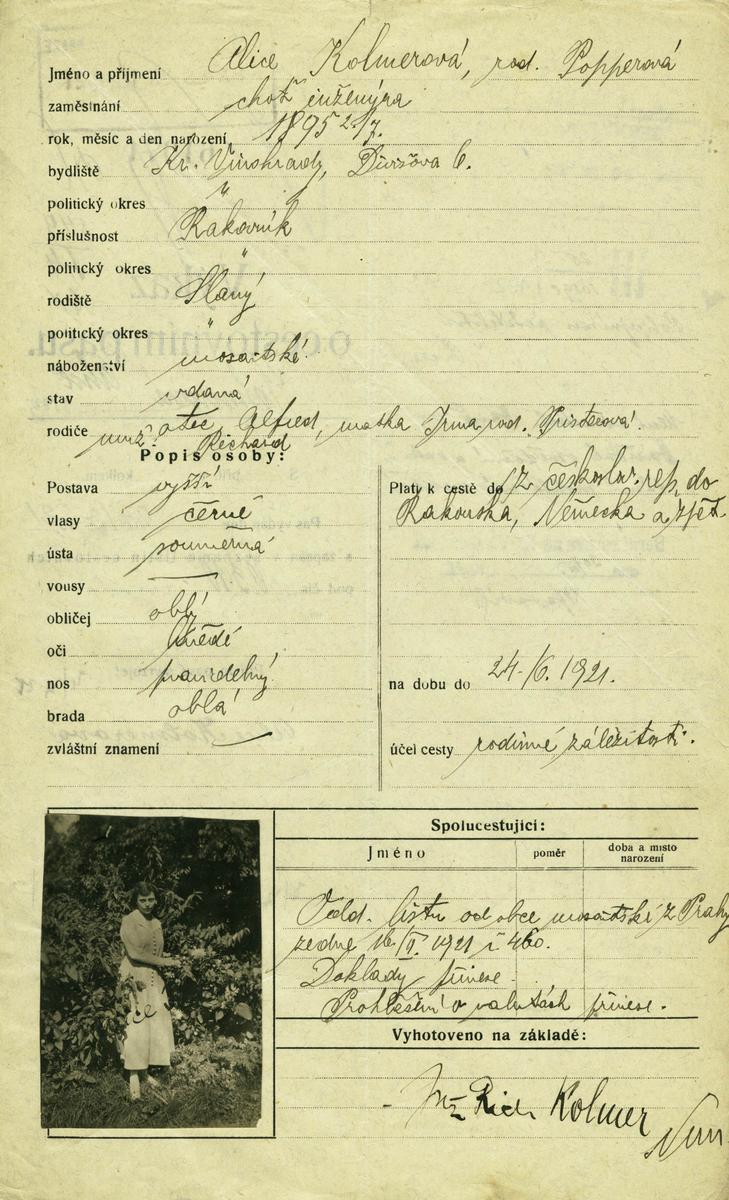 Jméno a příjmení Alice Kolmerová, roz. Popperová
zaměstnání choť inženýra
rok, měsíc a den narození 1895 2/7.
bydliště Kr. Vinohrady, 6.
politický okres "
příslušnost Rakovník
politický okres "
rodiště Slaný
politický okres "
náboženství mosaitské
stav vdaná
rodiče otec Alfred, matka Irma roz.
muž: Richard
Popis osoby:
Postava vyšší
vlasy černé
ústa souměrná
vousy —
obličej oblý
oči hnědé
nos pravidelný
brada oblá
zvláštní znamení —
Platí k cestě do z českoslov. rep. do
Rakouska, Německa a zpět
na dobu do 24./6. 1921.
účel cesty rodinné záležitosti.
Spolucestující:
Jméno poměr doba a místo narození
Odd. listu od obce mosaitské z Prahy
ze dne 16/II. 1921 č 460.
Doklady přinese.
Prohlášení o valutách přinese.
Vyhotoveno na základě:
Rich Kolmer